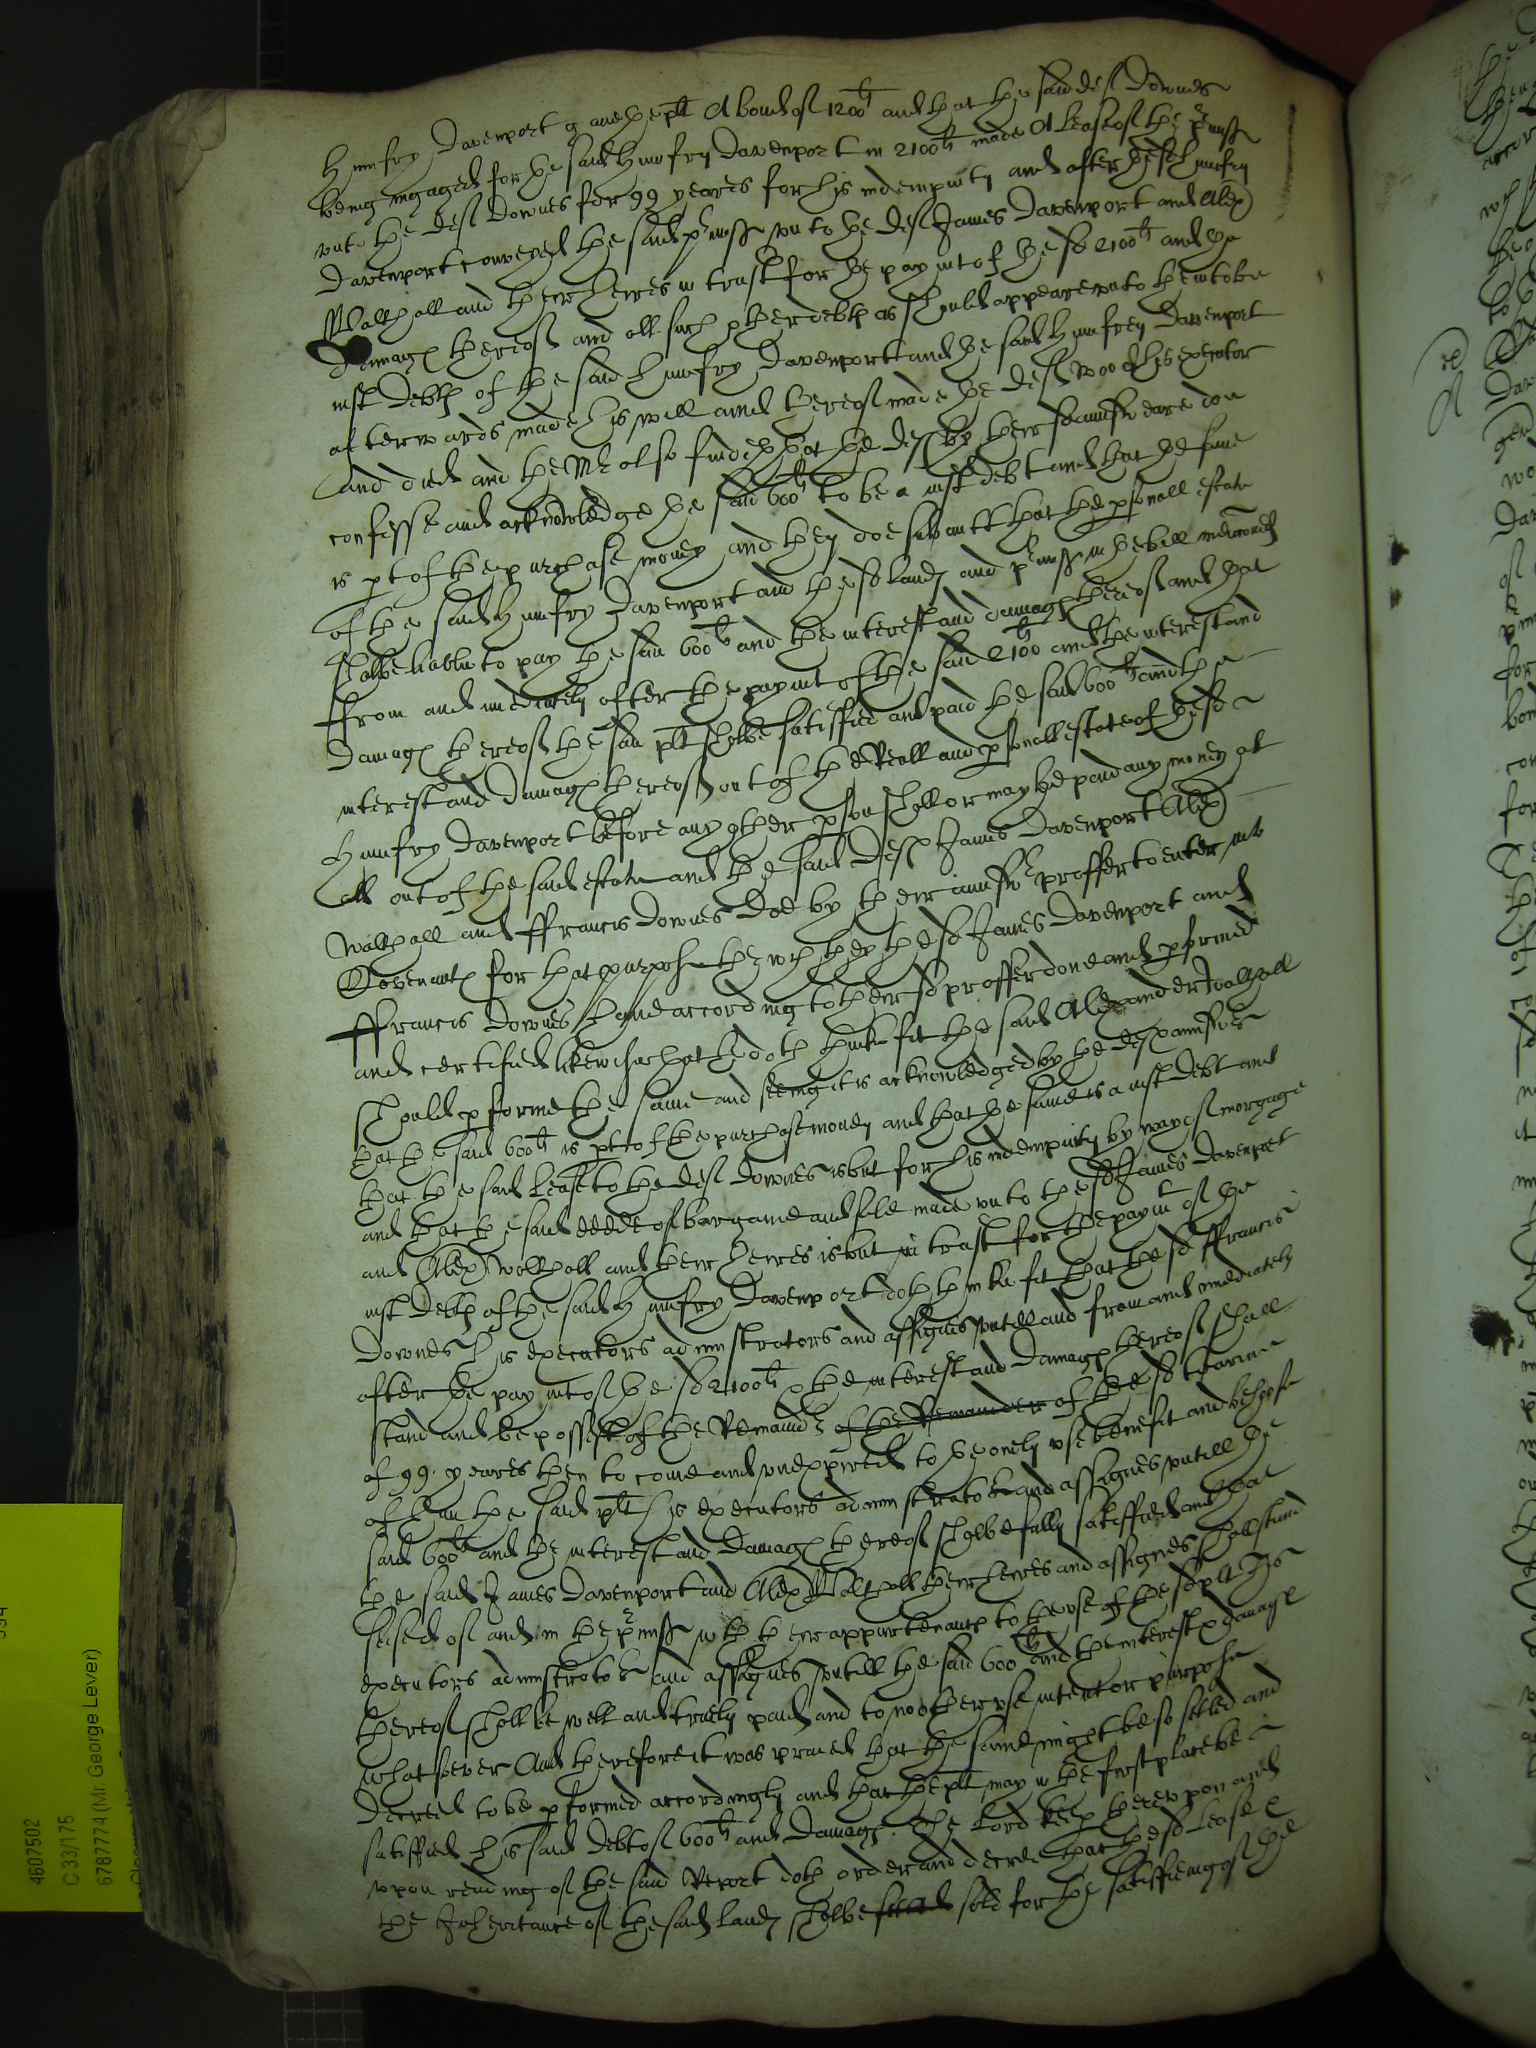 Humfry Davenport gave the plt A bond of 1200li and that the said deft Downes
being ingaged for the said Humfry Davenport in 2100li made A Lease of the pmiss
unto the deft Downes for 99 yeares for his indempnity and after the sd Humfry
Davenport conveyed the said pmiss unto the deft James Davenport and Alex
Walthall and their heires in trust for the paymt of the sd 2100li and the
damages thereof and all such other debts as should appeare unto them to be
just Debts of the said Humfry Davenport and the said Humfrey Davenport
afterwards made his will and thereof made the deft his executor
and died and the Mr also findeth that the defts by their said answeare doe
confesse and acknowledge the said 600li to be a just debt and that the same
is pt of the purchase money and they doe submitt that the psonall estate
of the said Humfry Davenport and the sd lands and pmiss in the bill mencioned
shalbe liable to pay the said 600li and the interest and damages thereof and that
from and imediately after the paymt of the said 2100li and the interest and
damages thereof the said plt shalbe satisfied and paid the said 600li and the
interest and damages thereof out of the Reall and psonall estate of the sd
Humfry Davenport before any other pson shall or may be paid any money at
all out of the said estate and the said Defts James Davenport Alex
Walthall and ffrancis Downes Doe by their answr proffer to enter into
Covenants for that purpose the wch they the sd James Davenport and
ffrancis Downes have according to their sd proffer done and pformed
and certified likewise that he doth thinke fit the said Alexander Walthall
should pforme the same and seeing it is acknowledged by the defts answers
that the said 600li is pt of the purchase money and that the same is a just debt and
that the said Lease to the deft Downes is but for his indempnity by way of morgage
and that the said deede of bargaine and sale made unto the sd James Davenport
and Alex Walthall and their heires is but in trust for the paymt of the
just Debts of the said Humfry Davenport doth thinke fit that the sd ffrancis
Downes his executors administrators and assignes untill and from and imediately
after the paymt of the sd 2100li & the interest and damages thereof shall
stand and be possest of the Remaindr of the Remainder of the sd tearme
of 99 yeares then to come and unexpired to the onely use benefit and behoofe
of him the said plt his executors administrators and assignes untill the
said 600li and the interest and Damages thereof shalbe fully satisfied and that
the said James Davenport and Alex Walthall their heires and assignes shall stand
seised of and in the pmiss wth their appurtenants to the use of the sd plt his
executors administrators and assignes untill the said 600li and the interest & damages
thereof shall be well and truely paid and to noe other use intent or purpose
whatsoever And therefore it was praied that the same might be so setled and
Decreed to be pformed accordingly and that the plt may in the first place be
satisfied his said debt of 600li and Damages. The Lord keepr thereupon and
upon reading of the said Report doth order and decree that the sd Lease &
the Inheritance of the said lands shalbe sold for the satisfieing of the
4607502
C 33/175
6787774 (Mr. George Lever)